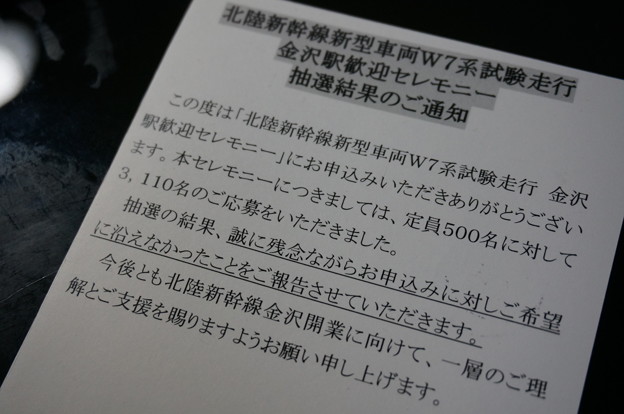 北陸新幹線新型車両W7系試験走行
金沢駅歓迎セレモニー
抽選結果のご通知
この度は「北陸新幹線新型車両W7系試験走行 金沢
駅歓迎セレモニー」にお申込みいただきありがとうござい
ます。本セレモニーにつきましては、定員500名に対して
3,110名のご応募をいただきました。
抽選の結果、誠に残念ながらお申込みに対しご希望
に沿えなかったことをご報告させていただきます。
今後とも北陸新幹線金沢開業に向けて、一層のご理
解とご支援を賜りますようお願い申し上げます。